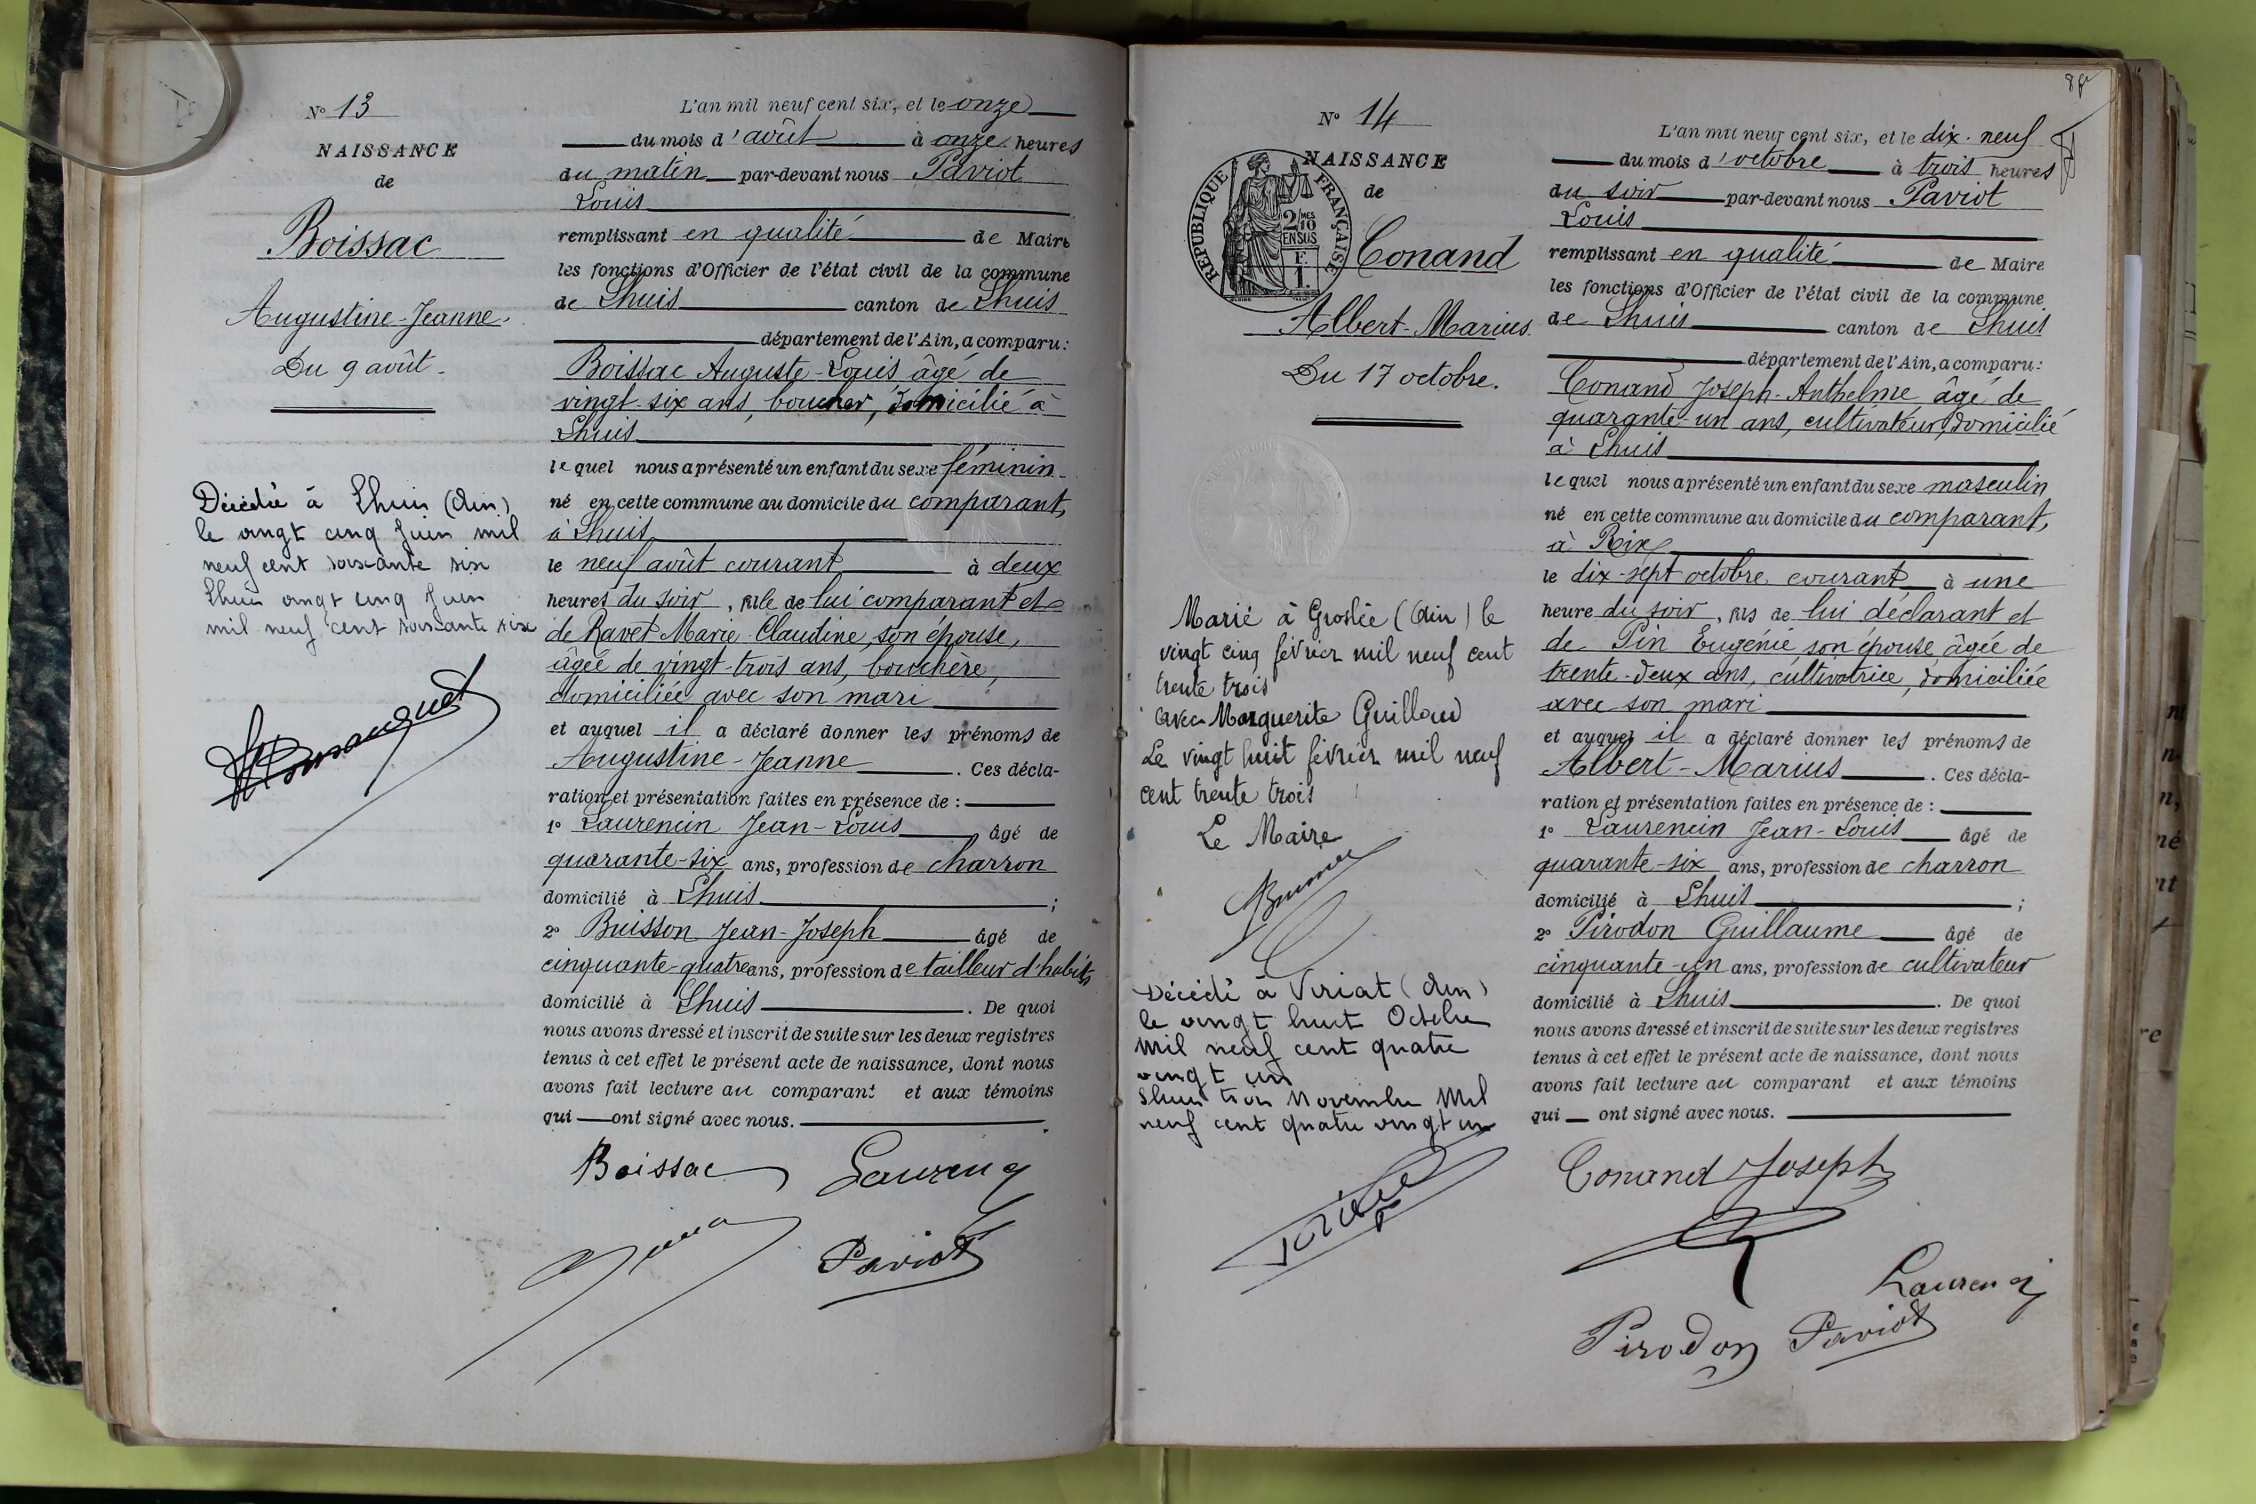 N° 13
NAISSANCE
de
Boissac
Augustine-Jeanne.
Du 9 août.
Décédée à Lhuis (Ain)
le vingt cinq Juin mil
neuf cent soixante six
Lhuis vingt cinq Juin
mil neuf cent soixante six
L'an mil neuf cent six, et le onze
du mois d'août à onze heures
du matin par-devant nous Paviot
Louis
remplissant en qualité de Maire
les fonctions d'Officier de l'état civil de la commune
de Lhuis canton de Lhuis
département de l'Ain, a comparu:
Boissac Auguste-Louis âgé de
vingt-six ans, boucher, domicilié à
Lhuis
lequel nous a présenté un enfant du sexe féminin
né en cette commune au domicile du comparant,
à Lhuis
le neuf août courant à deux
heures du soir, fille de lui comparant et
de Ravet Marie-Claudine, son épouse,
âgée de vingt-trois ans, bouchère,
domiciliée avec son mari
et auquel il a déclaré donner les prénoms de
Augustine-Jeanne. Ces décla-
ration et présentation faites en présence de :
1° Laurencin Jean-Louis âgé de
quarante-six ans, profession de charron
domicilié à Lhuis ;
2° Buisson Jean-Joseph âgé de
cinquante-quatre ans, profession de tailleur d'habits
domicilié à Lhuis. De quoi
nous avons dressé et inscrit de suite sur les deux registres
tenus à cet effet le présent acte de naissance, dont nous
avons fait lecture au comparant et aux témoins
qui ont signé avec nous.
Boissac Laurencin
Paviot
N° 14
NAISSANCE
de
RÉPUBLIQUE FRANÇAISE
2/10 MES
EN SUS
F.
1.
Conand
Albert-Marius.
Du 17 octobre.
Marié à Groslée (Ain) le
vingt cinq février mil neuf cent
trente trois
avec Marguerite Guilloud
Le vingt huit février mil neuf
cent trente trois
Le Maire
Décédé à Viriat (Ain)
le vingt huit Octobre
Mil neuf cent quatre
vingt un
Lhuis trois Novembre Mil
neuf cent quatre vingt un
L'an mil neuf cent six, et le dix-neuf
du mois d'octobre à trois heures
du soir par-devant nous Paviot
Louis
remplissant en qualité de Maire
les fonctions d'Officier de l'état civil de la commune
de Lhuis canton de Lhuis
département de l'Ain, a comparu:
Conand Joseph-Anthelme âgé de
quarante-un ans, cultivateur, domicilié
à Lhuis
lequel nous a présenté un enfant du sexe masculin
né en cette commune au domicile du comparant,
à Rix
le dix-sept octobre courant à une
heure du soir, fils de lui déclarant et
de Pin Eugénie son épouse, âgée de
trente-deux ans, cultivatrice, domiciliée
avec son mari
et auquel il a déclaré donner les prénoms de
Albert-Marius. Ces décla-
ration et présentation faites en présence de :
1° Laurencin Jean-Louis âgé de
quarante-six ans, profession de charron
domicilié à Lhuis ;
2° Pirodon Guillaume âgé de
cinquante-un ans, profession de cultivateur
domicilié à Lhuis. De quoi
nous avons dressé et inscrit de suite sur les deux registres
tenus à cet effet le présent acte de naissance, dont nous
avons fait lecture au comparant et aux témoins
qui ont signé avec nous.
Conand Joseph
Laurencin
Pirodon Paviot